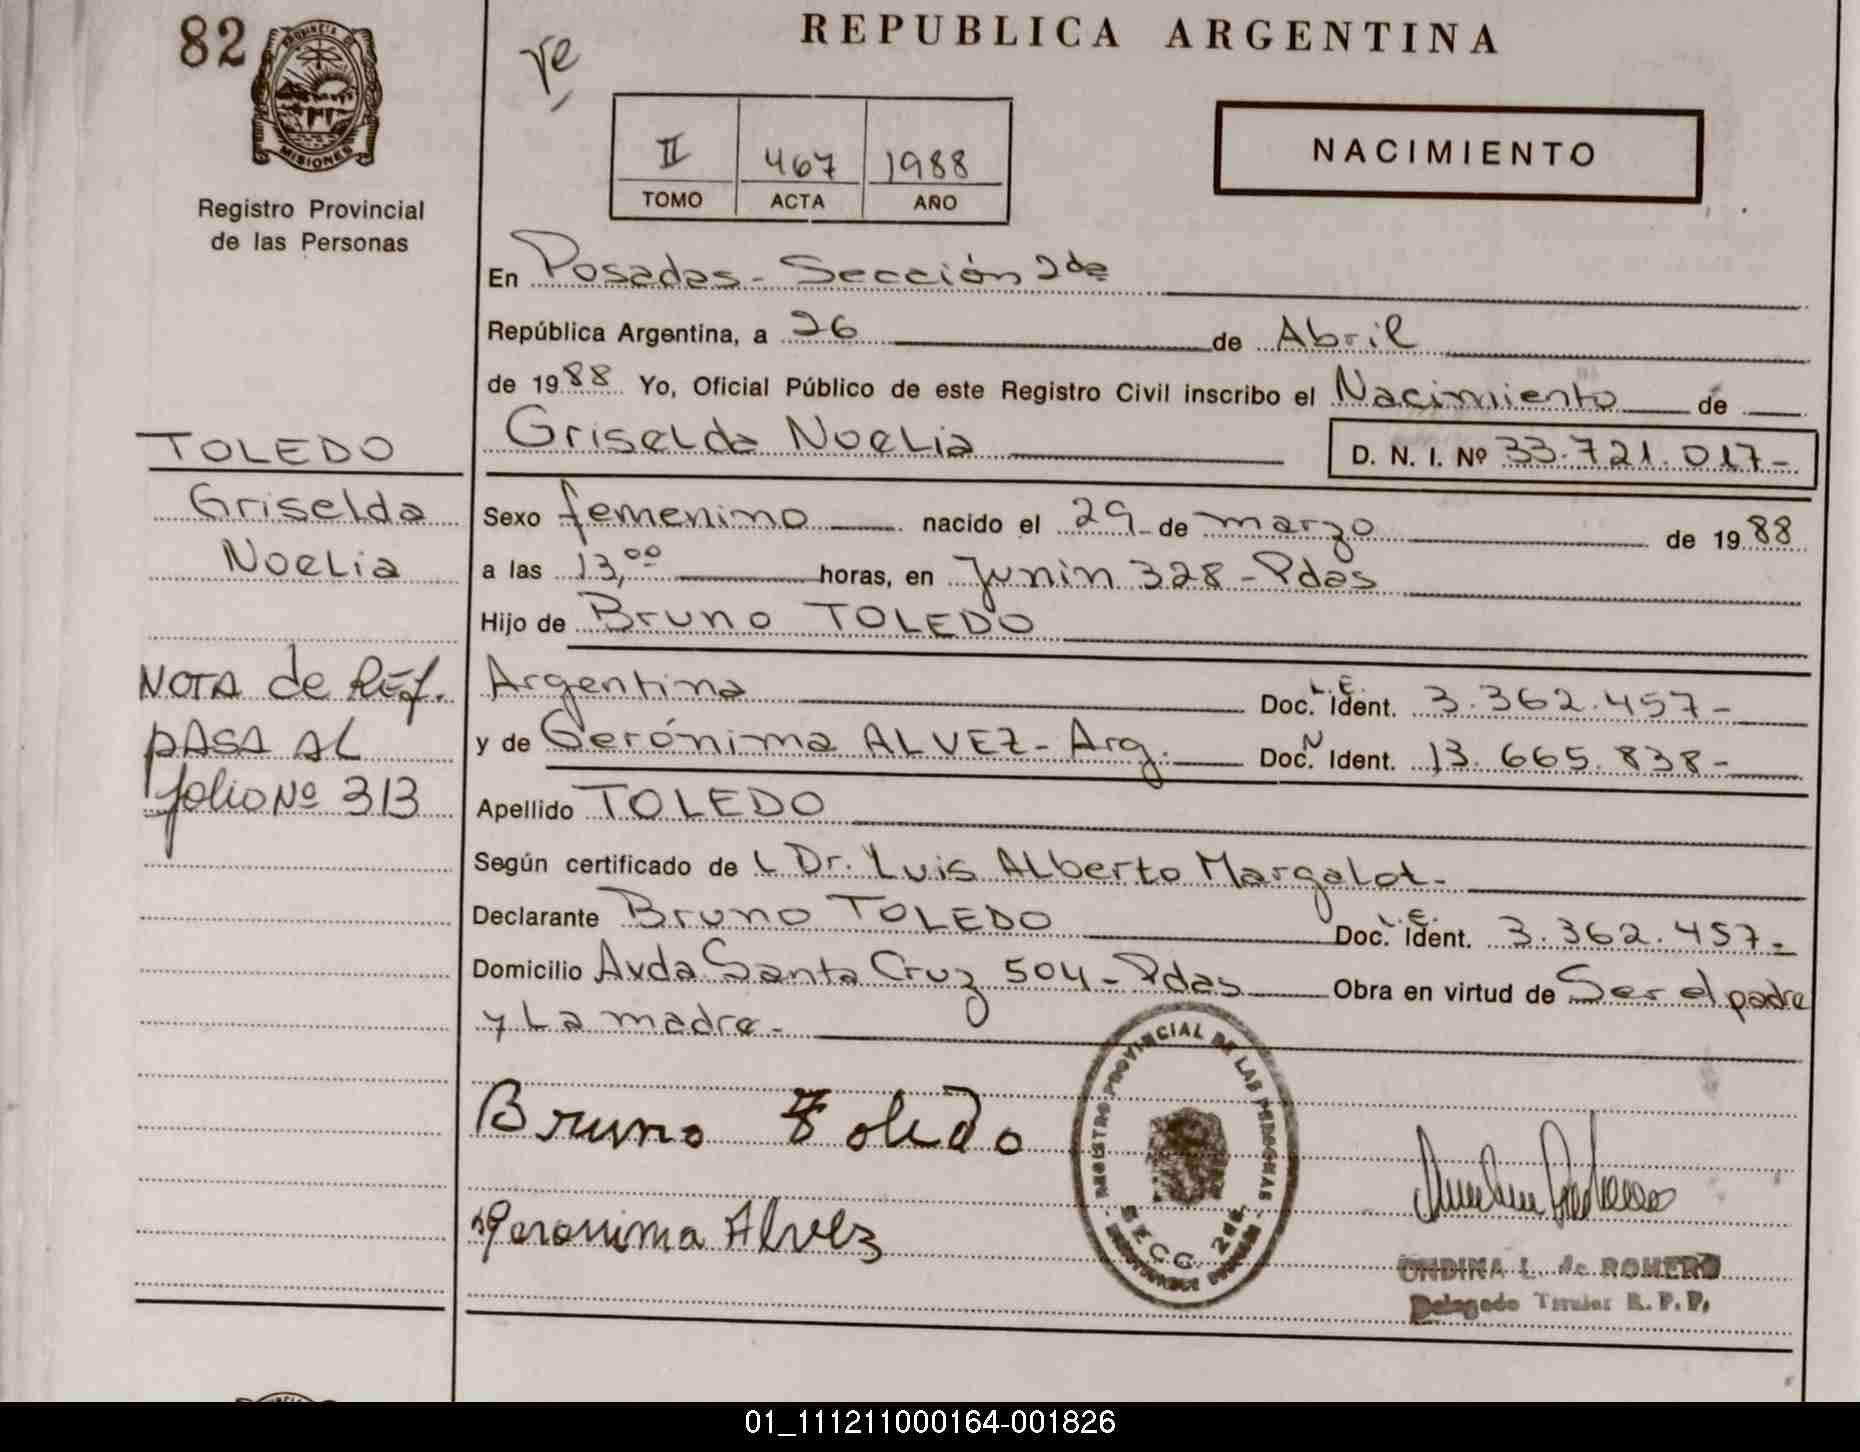 82
PROVINCIA DE
MISIONES
Registro Provincial
de las Personas
REPUBLICA ARGENTINA
II 467 1988
TOMO ACTA AÑO
NACIMIENTO
En Posadas - Sección 2da
República Argentina, a 26 de Abril
de 1988 Yo, Oficial Público de este Registro Civil inscribo el Nacimiento de
Griselda Noelia D. N. I. Nº 33.721.017-
Sexo femenino nacido el 29 de marzo de 1988
a las 13,00 horas, en Junin 328 - Pdas
Hijo de Bruno TOLEDO
Argentina Doc. Ident. L.E. 3.362.457-
y de Gerónima ALVEZ - Arg. Doc. N Ident. 13.665.838-
Apellido TOLEDO
Según certificado de L Dr. Luis Alberto Margalot-
Declarante Bruno TOLEDO Doc. Ident. L.E. 3.362.457-
Domicilio Avda Santa Cruz 504 - Pdas Obra en virtud de Ser el padre
y La madre-
Bruno Toledo
Geronima Alvez
TOLEDO
Griselda
Noelia
NOTA de REf.
PASA AL
folio Nº 313
REGISTRO PROVINCIAL DE LAS PERSONAS
SECC. 2da.
ONDINA L. de ROMERO
Delegado Titular R. P. P.
01_111211000164-001826